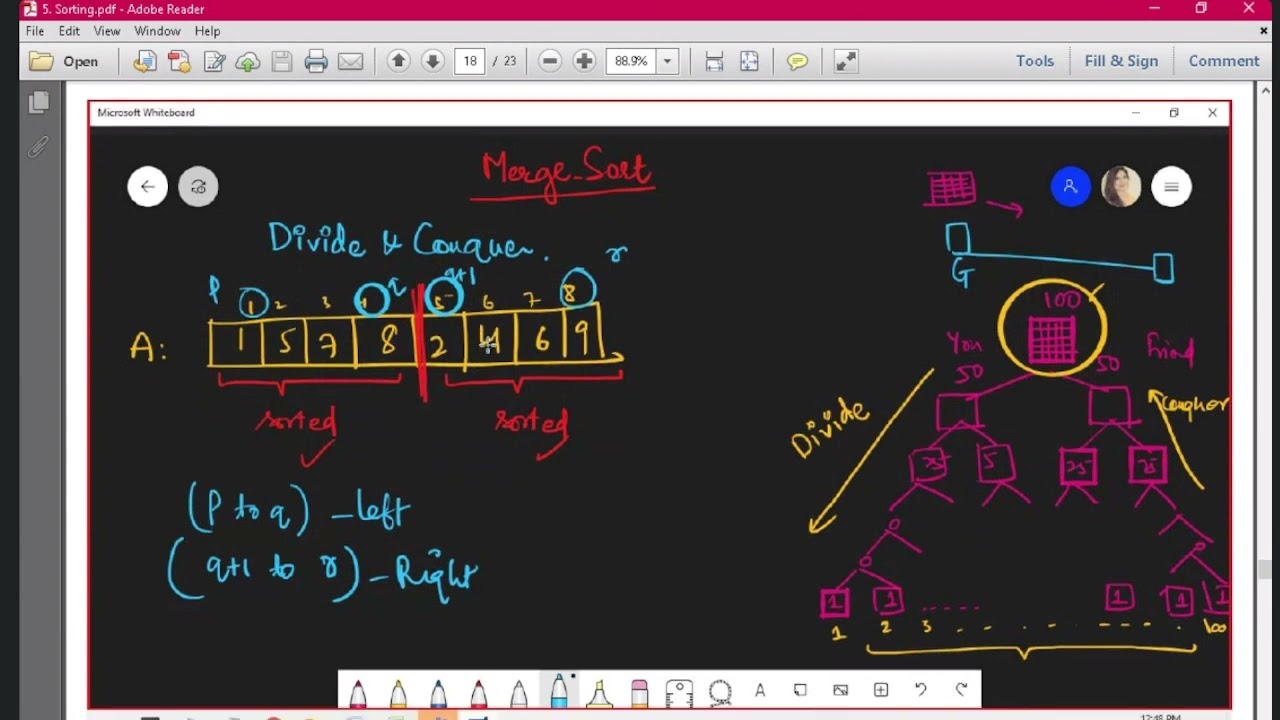 5. Sorting.pdf - Adobe Reader
File Edit View Window Help
Open 18 / 23 88.9% Tools Fill & Sign Comment
Microsoft Whiteboard
Merge-Sort
Divide & Conquer.
p q q+1 r
1 2 3 4 5 6 7 8
A: 1 5 7 8 2 4 6 9
sorted sorted
(P to q) - left
(q+1 to r) - Right
G
100
You 50 50 Friend
Divide
Conquer
25 5 25 25
1 1 ...... 1 1 1
1 2 3 - - . - - - - . 100
A
12:48 PM